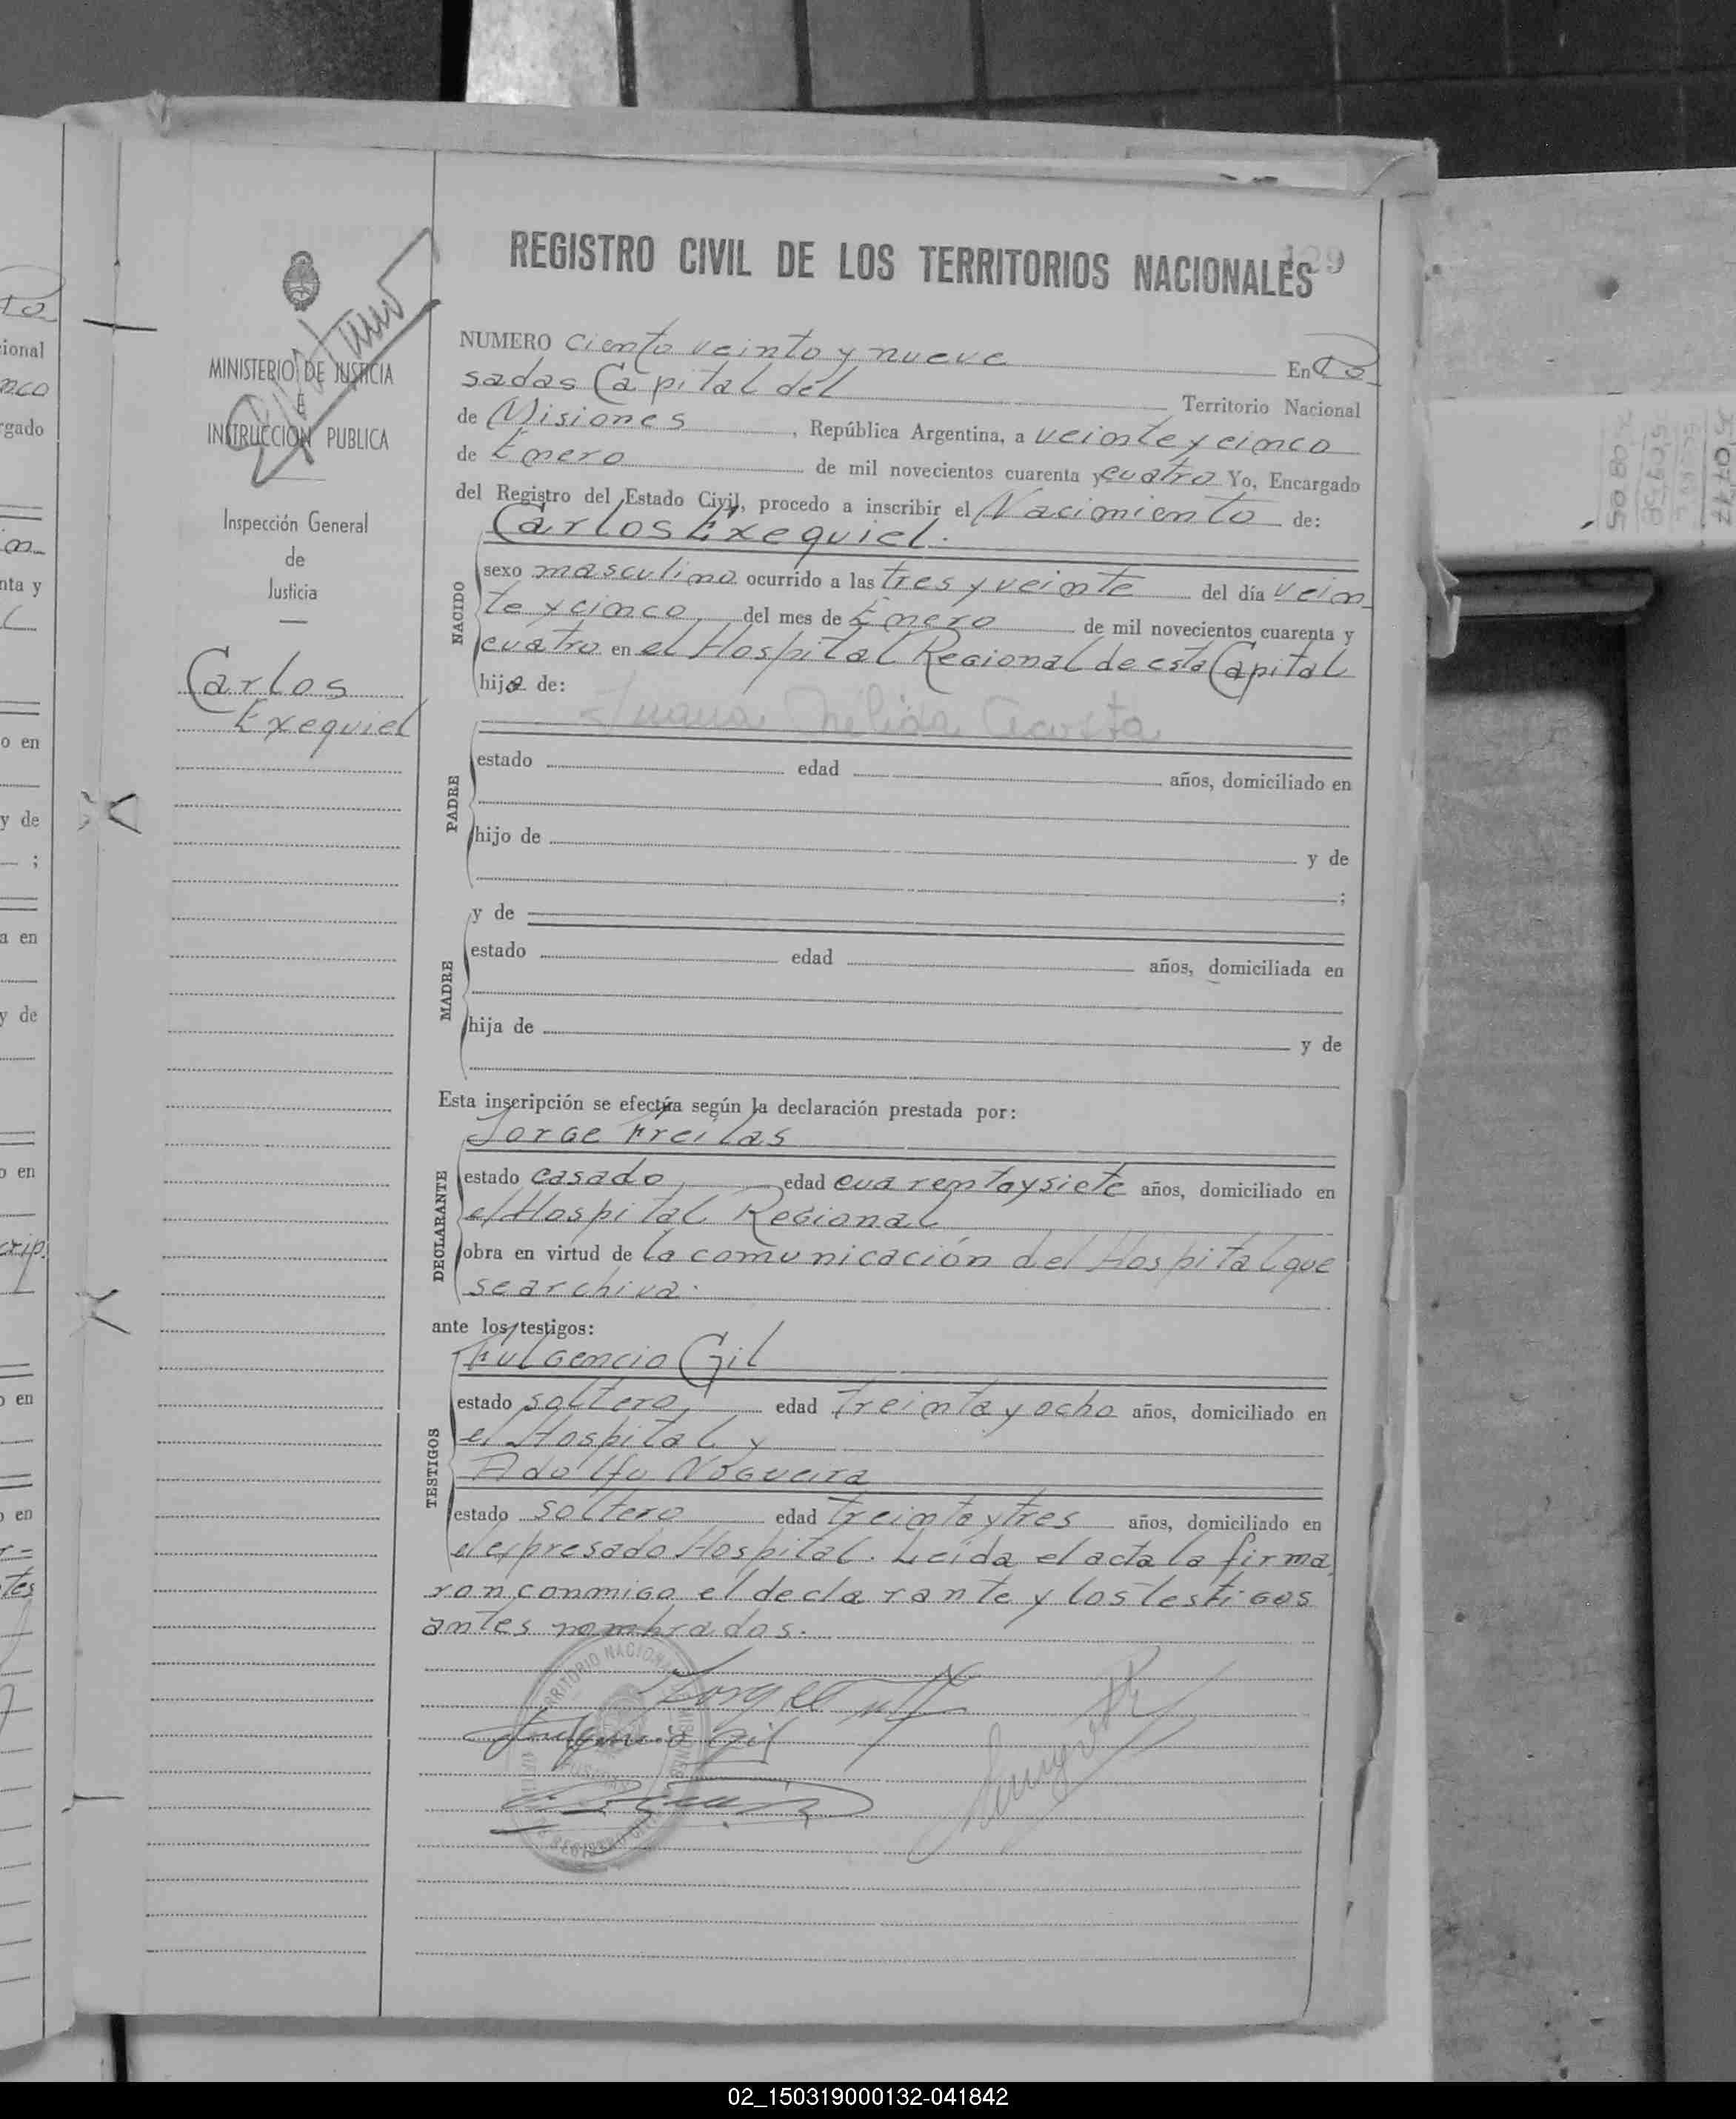 REGISTRO CIVIL DE LOS TERRITORIOS NACIONALES
129
MINISTERIO DE JUSTICIA
E
INSTRUCCIÓN PUBLICA
Inspección General
de
Justicia
Carlos
Exequiel
NUMERO ciento veinto y nueve En Po
sadas Capital del Territorio Nacional
de Misiones, República Argentina, a veinte y cinco
de Enero de mil novecientos cuarenta y cuatro Yo, Encargado
del Registro del Estado Civil, procedo a inscribir el Nacimiento de:
Carlos Exequiel.
NACIDO
sexo masculino ocurrido a las tres y veinte del día vein
te y cinco, del mes de Enero de mil novecientos cuarenta y
cuatro en el Hospital Regional de esta Capital
hijo de:
Juana Nelida Acosta
PADRE
estado edad años, domiciliado en
hijo de y de
;
MADRE
y de
estado edad años, domiciliada en
hija de y de
Esta inscripción se efectúa según la declaración prestada por:
Jorge Freitas
DECLARANTE
estado casado, edad cuarentaysiete años, domiciliado en
el Hospital Regional
obra en virtud de la comunicación del Hospital que
se archiva.
ante los testigos:
Fulgencio Gil
TESTIGOS
estado soltero, edad treinta y ocho años, domiciliado en
el Hospital y
Adolfo Nogueira
estado soltero edad treinta y tres años, domiciliado en
el expresado Hospital. Leída el acta la firma
ron conmigo el declarante y los testigos
antes nombrados.
Fulgencio Gil
02_150319000132-041842